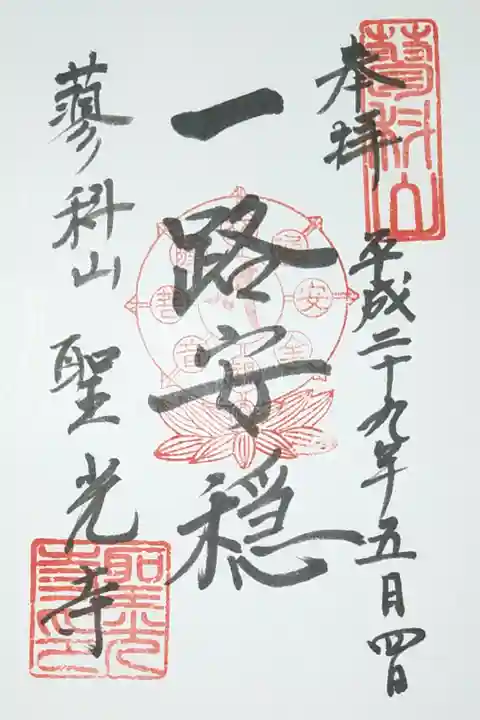 奉拝
平成二十九年五月四日
一路安穏
蓼科山
聖光寺
蓼科山
安
全